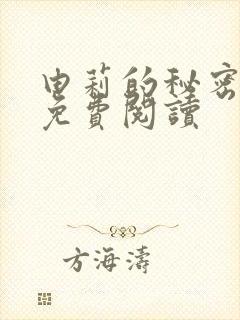 申莉的秘密
免費閱讀
方海濤